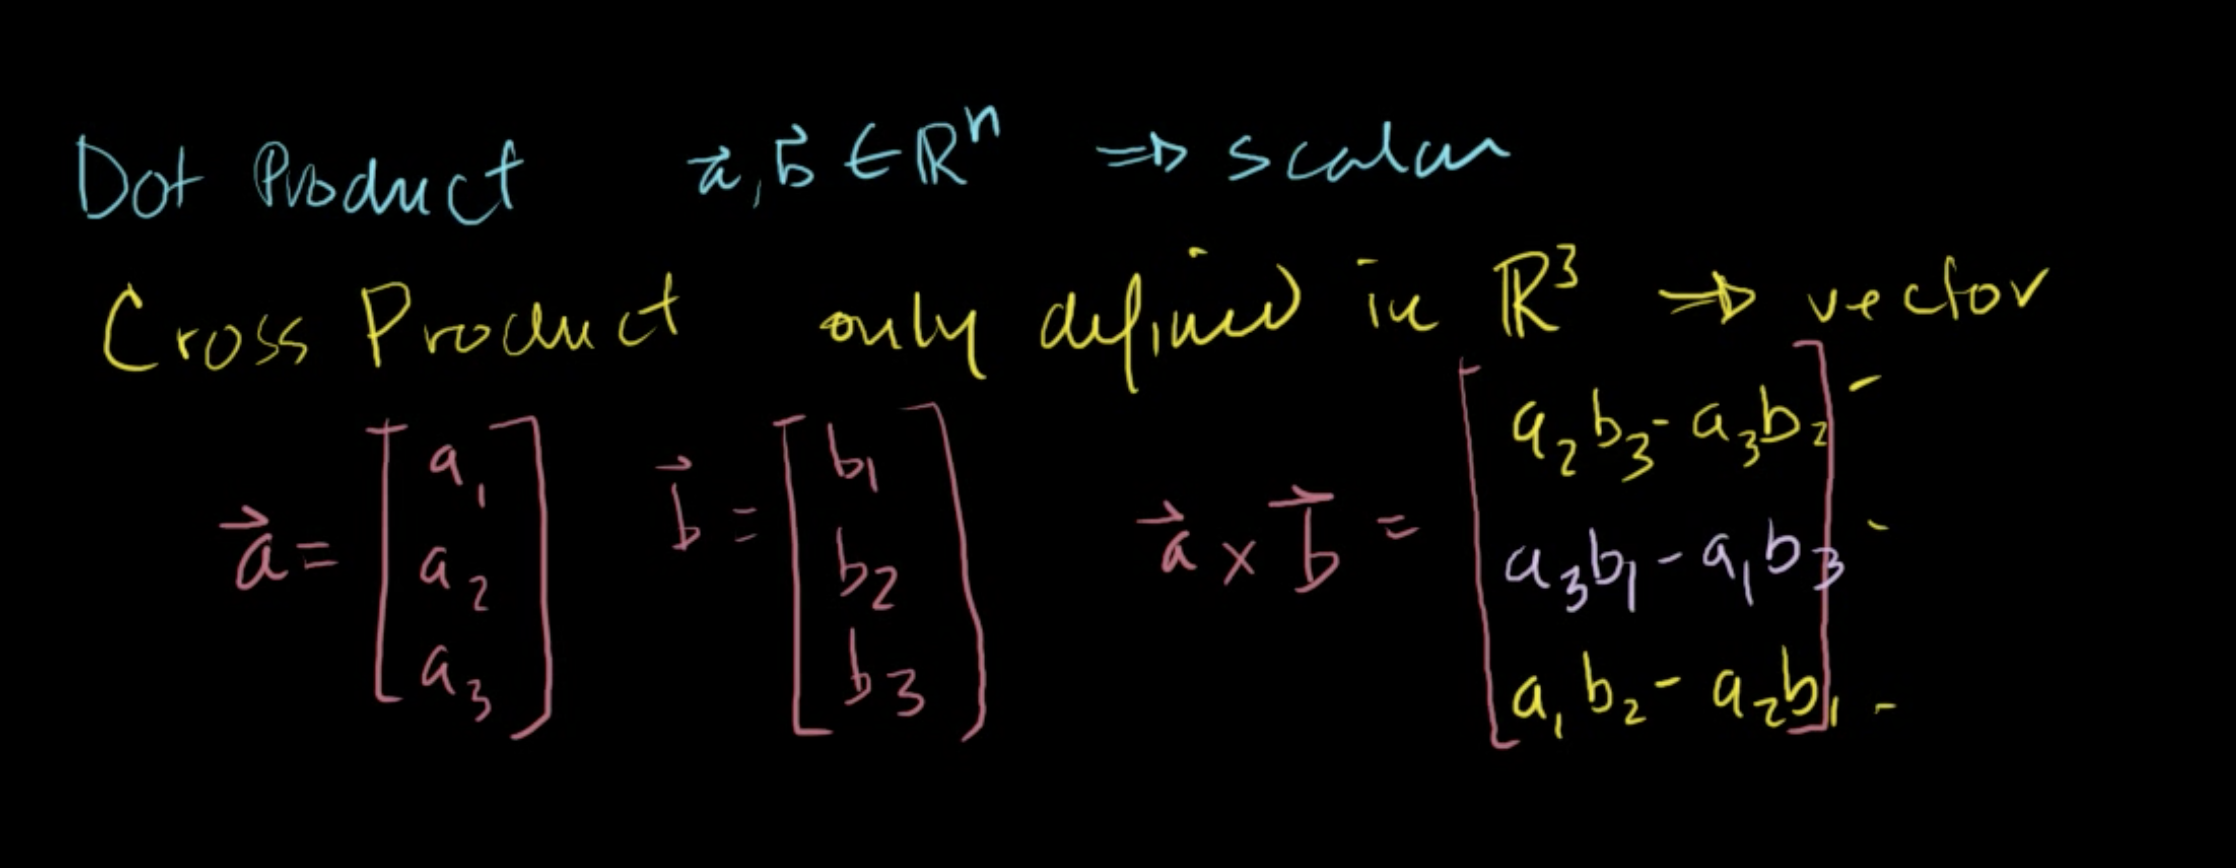 Dot Product a⃗, b⃗ ∈ ℝⁿ ⇒ scalar
Cross Product only defined in ℝ³ ⇒ vector
a⃗ = [a₁ a₂ a₃] b⃗ = [b₁ b₂ b₃] a⃗ × b⃗ = [a₂b₃ - a₃b₂
a₃b₁ - a₁b₃
a₁b₂ - a₂b₁]